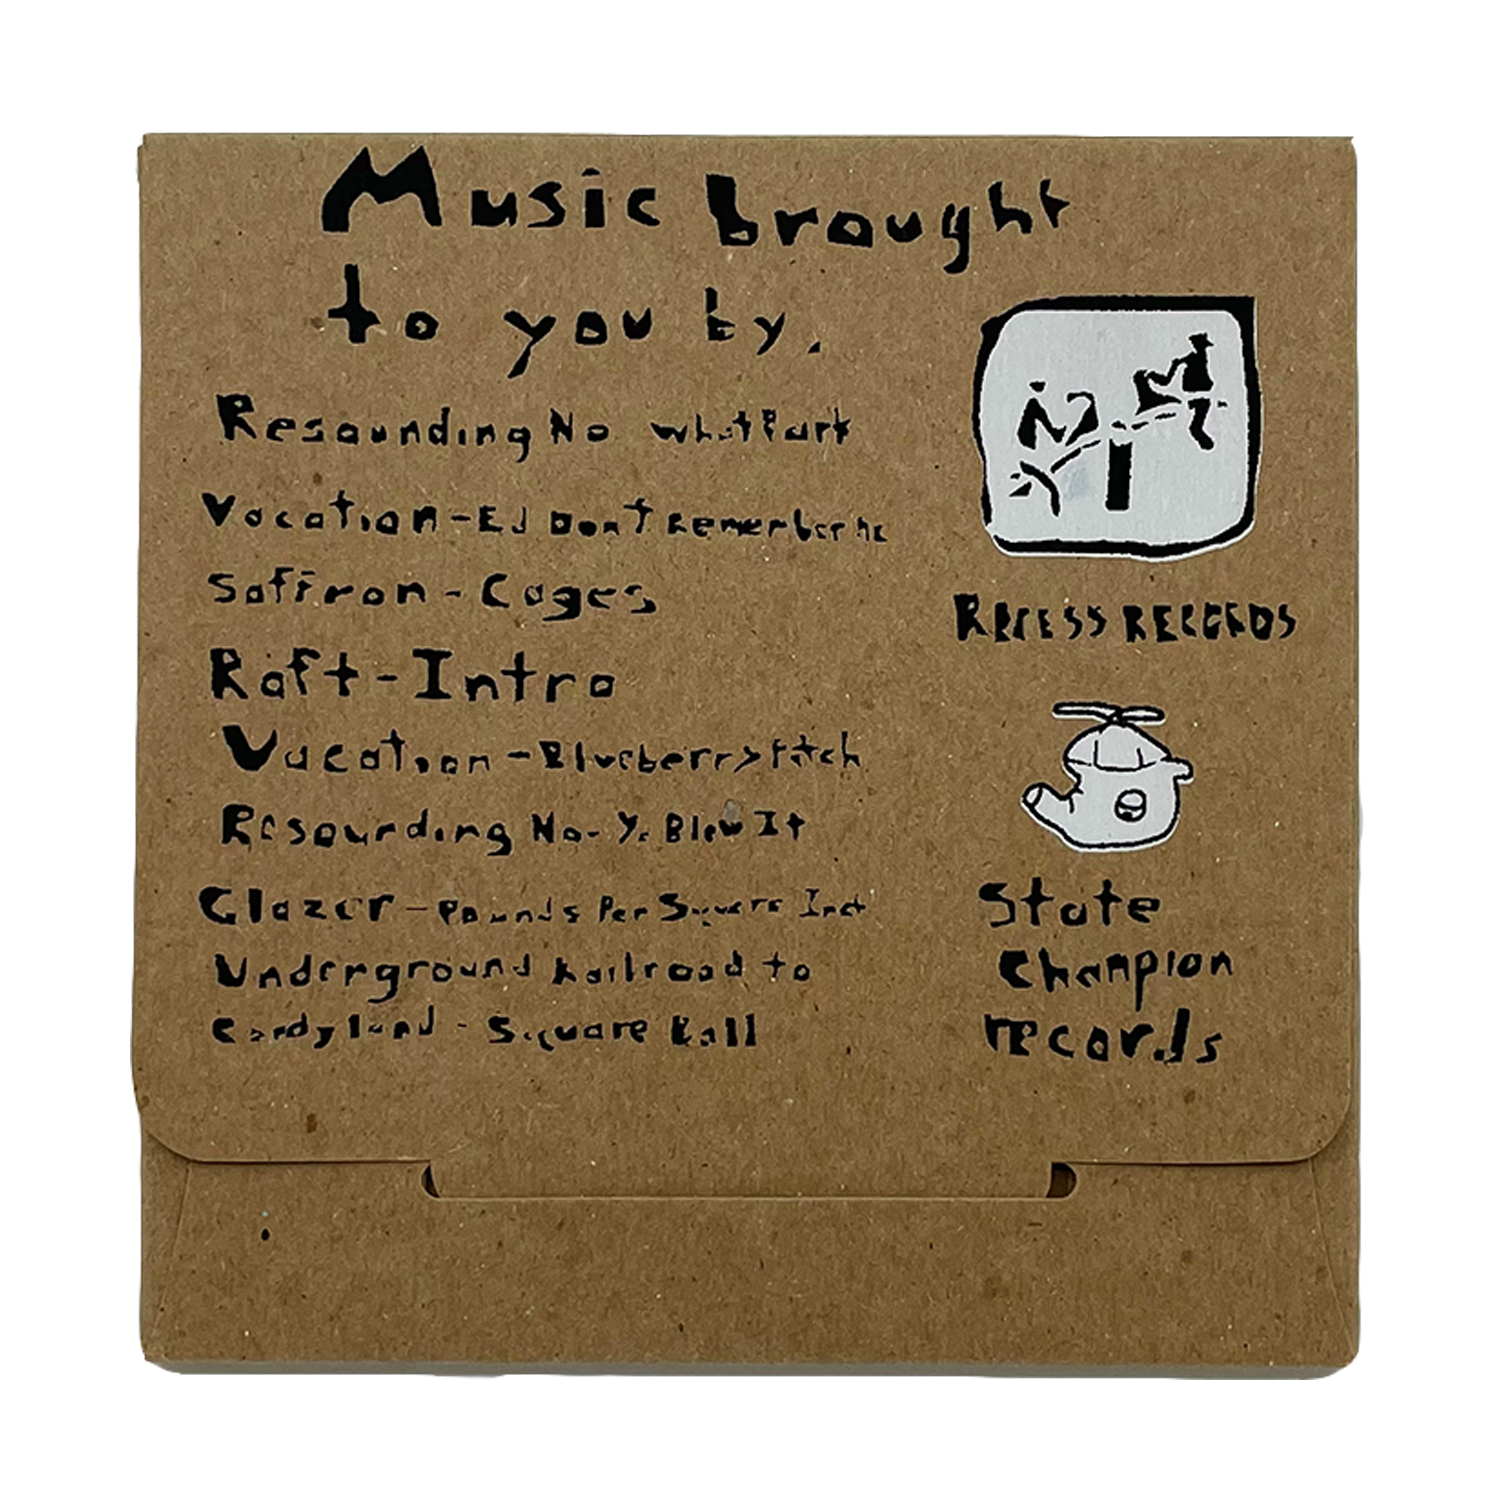 Music brought
to you by,
Resounding No what Part
Vacation - EJ Don't Remember Me
Saffron - Cages
Raft - Intro
Vacation - Blueberry Pitch
Resounding No - Yr Blew It
Glazer - Pounds Per Square Inch
Underground Railroad to
Candyland - Square Ball
RECESS RECORDS
State
Champion
records